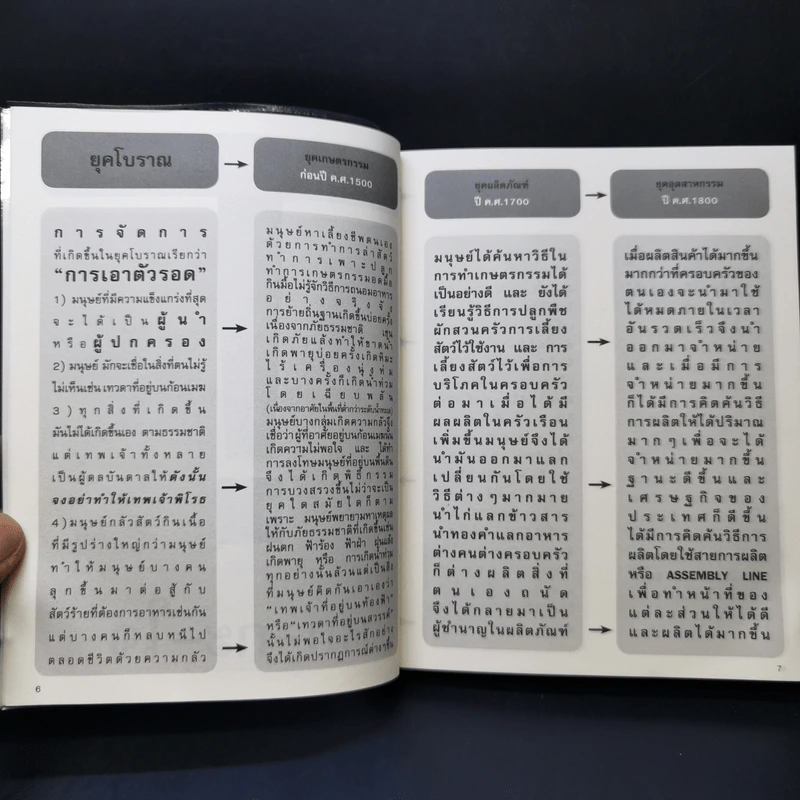 ยุคโบราณ
การจัดการ
ที่เกิดขึ้นในยุคโบราณเรียกว่า
“การเอาตัวรอด”
1) มนุษย์ที่มีความแข็งแกร่งที่สุด
จะได้เป็น ผู้นำ
หรือ ผู้ปกครอง
2) มนุษย์ มักจะเชื่อในสิ่งที่ตนไม่รู้
ไม่เห็นเช่น เทวดาที่อยู่บนก้อนเมฆ
3) ทุกสิ่งที่เกิดขึ้น
มันไม่ได้เกิดขึ้นเอง ตามธรรมชาติ
แต่เทพเจ้าทั้งหลาย
เป็นผู้ดลบันดาลให้ ดังนั้น
จงอย่าทำให้เทพเจ้าพิโรธ
4) มนุษย์กลัวสัตว์กินเนื้อ
ที่มีรูปร่างใหญ่กว่ามนุษย์
ทำให้มนุษย์บางคน
ลุกขึ้นมาต่อสู้กับ
สัตว์ร้ายที่ต้องการอาหารเช่นกัน
แต่บางคนก็หลบหนีไป
ตลอดชีวิตด้วยความกลัว
6
ยุคเกษตรกรรม
ก่อนปี ค.ศ.1500
มนุษย์หาเลี้ยงชีพตนเอง
ด้วยการทำการล่าสัตว์
ทำการเพาะปลูก
ทำการเกษตรกรรมอดมื้อ
กินมื้อไม่รู้จักวิธีการถนอมอาหาร
อย่างจริงจัง
การย้ายถิ่นฐานเกิดขึ้นบ่อยครั้ง
เนื่องจากภัยธรรมชาติ เช่น
เกิดภัยแล้งทำให้ขาดน้ำ
เกิดพายุบ่อยครั้งเกิดหิมะ
ไร้เครื่องนุ่งห่ม
และบางครั้งก็เกิดน้ำท่วม
โดยเฉียบพลัน
(เนื่องจากอาศัยในพื้นที่ต่ำกว่าระดับน้ำทะเล)
มนุษย์บางกลุ่มเกิดความกลัวจึง
เชื่อว่าผู้ที่อาศัยอยู่บนก้อนเมฆนั้น
เกิดความไม่พอใจ และ ได้ทำ
การลงโทษมนุษย์ที่อยู่บนพื้นดิน
จึงได้เกิดพิธีกรรม
การบวงสรวงขึ้นไม่ว่าจะเป็น
ยุคใดสมัยใดก็ตาม
เพราะ มนุษย์พยายามหาเหตุผล
ให้กับภัยธรรมชาติที่เกิดขึ้นเช่น
ฝนตก ฟ้าร้อง ฟ้าผ่า ฝุ่นแล้ง
เกิดพายุ หรือ การเกิดน้ำท่วม
ทุกอย่างนั้นล้วนแต่เป็นสิ่ง
ที่มนุษย์คิดกันเอาเองว่า
“เทพเจ้าที่อยู่บนท้องฟ้า”
หรือ“เทวดาที่อยู่บนสวรรค์”
นั้นไม่พอใจอะไรสักอย่าง
จึงได้เกิดปรากฏการณ์ต่างๆขึ้น
ยุคผลิตภัณฑ์
ปี ค.ศ.1700
มนุษย์ได้ค้นหาวิธีใน
การทำเกษตรกรรมได้
เป็นอย่างดี และ ยังได้
เรียนรู้วิธีการปลูกพืช
ผักสวนครัวการเลี้ยง
สัตว์ไว้ใช้งาน และ การ
เลี้ยงสัตว์ไว้เพื่อการ
บริโภคในครอบครัว
ต่อมาเมื่อได้มี
ผลผลิตในครัวเรือน
เพิ่มขึ้นมนุษย์จึงได้
นำมันออกมาแลก
เปลี่ยนกันโดยใช้
วิธีต่างๆมากมาย
นำไก่แลกข้าวสาร
นำทองคำแลกอาหาร
ต่างคนต่างครอบครัว
ก็ต่างผลิตสิ่งที่
ตนเองถนัด
จึงได้กลายมาเป็น
ผู้ชำนาญในผลิตภัณฑ์
ยุคอุตสาหกรรม
ปี ค.ศ.1800
เมื่อผลิตสินค้าได้มากขึ้น
มากกว่าที่ครอบครัวของ
ตนเองจะนำมาใช้
ได้หมดภายในเวลา
อันรวดเร็วจึงนำ
ออกมาจำหน่าย
และเมื่อมีการ
จำหน่ายมากขึ้น
ก็ได้มีการคิดค้นวิธี
การผลิตให้ได้ปริมาณ
มากๆเพื่อจะได้
จำหน่ายมากขึ้น
ฐานะดีขึ้นและ
เศรษฐกิจของ
ประเทศก็ดีขึ้น
ได้มีการคิดค้นวิธีการ
ผลิตโดยใช้สายการผลิต
หรือ ASSEMBLY LINE
เพื่อทำหน้าที่ของ
แต่ละส่วนให้ได้ดี
และผลิตได้มากขึ้น
7